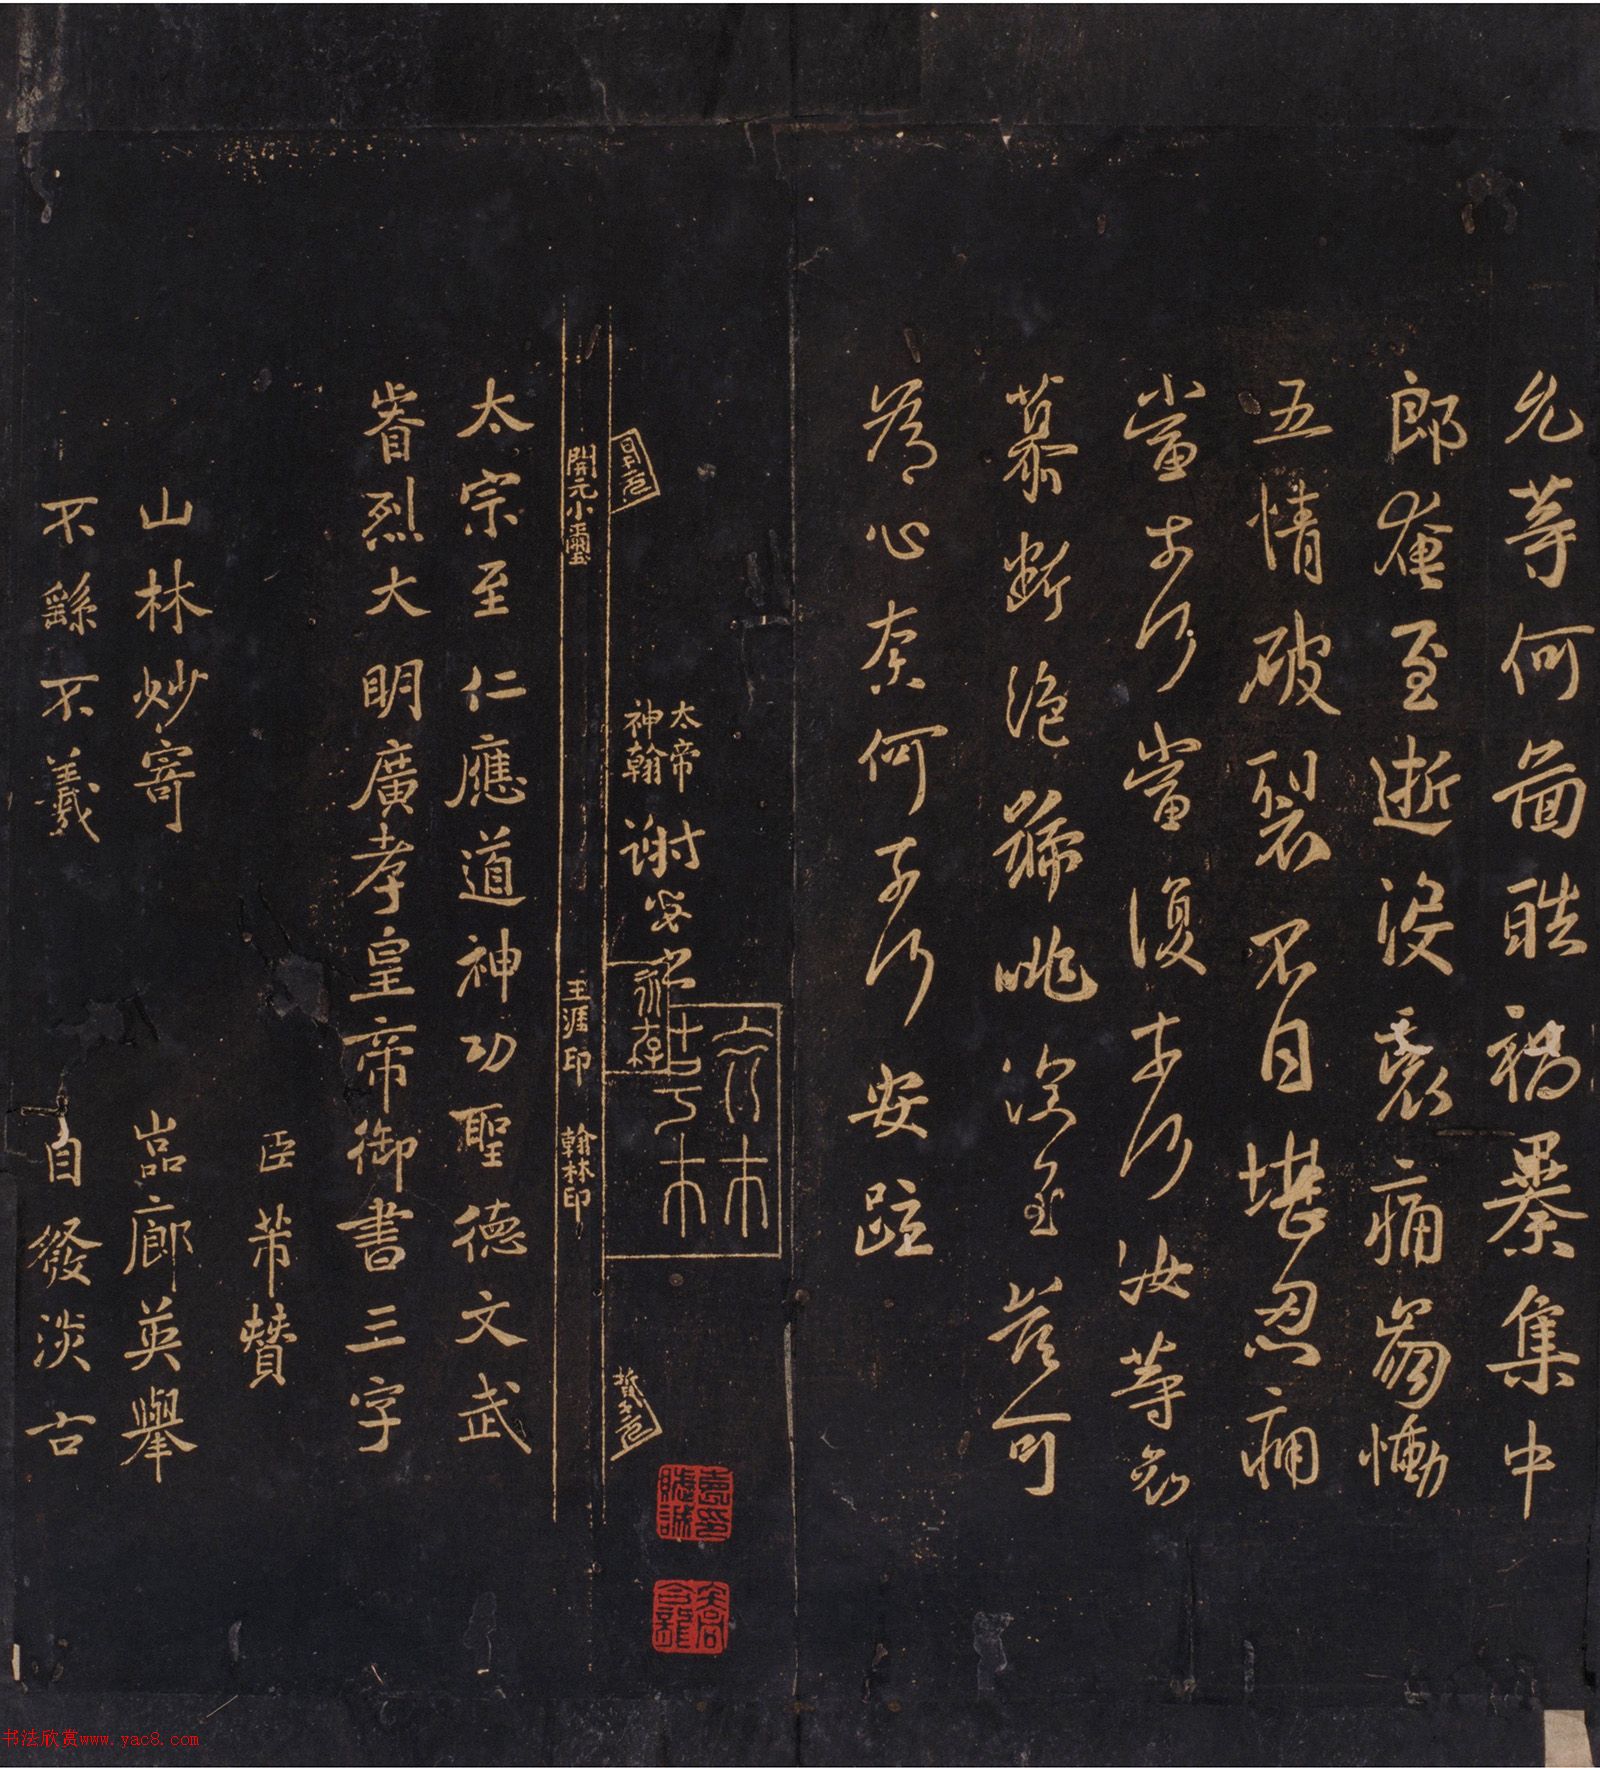 允等何啚酷禍暴集中
郎奄至逝沒哀痛崩慟
五情破裂不自堪忍痛
當奈何當復奈何汝等哀
慕斷絕號咷深至豈可
為心奈何奈何安疏
太帝
神翰
謝安書
永存
開元小璽
王涯印
翰林印
太宗至仁應道神功聖德文武
睿烈大明廣孝皇帝御書三字
臣芾贊
山林妙寄 嵓廊英舉
不繇不羲 自發淡古
书法欣赏www.yac8.com